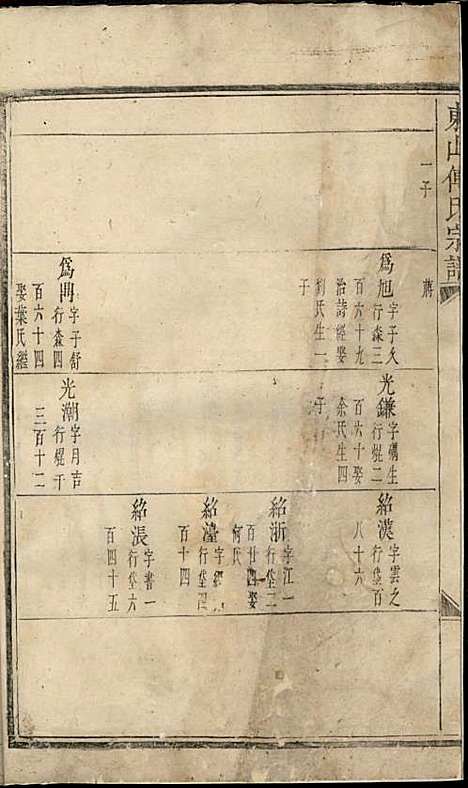 東山傅氏宗譜
一子
蔣
為旭字子久
行森三
百六十九
治詩經娶
劉氏生一
子
為門字子舒
行森四
百六十四
娶葉氏繼
光鐮字礪生
行棍二
百六十娶
余氏生四
子
光潮字月吉
行棍千
三百十二
紹漢字雲之
行堂百
八十六
紹浙字江一
行堂二
百廿四娶
何氏
紹濠字經一
行堂四
百十四
紹漲字書一
行堂六
百四十五